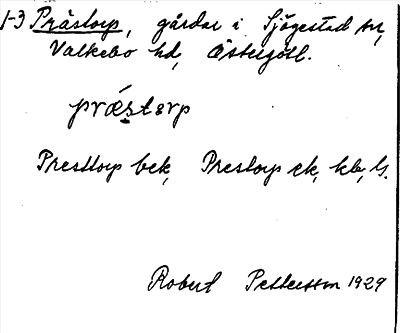 1-3 Prästorp, gårdar i Sjögestad sn,
Valkebo hd, Östergötl.
præstorp
Presttorp bek, Prestorp ek, kb, ls.
Robert Pettersson 1929